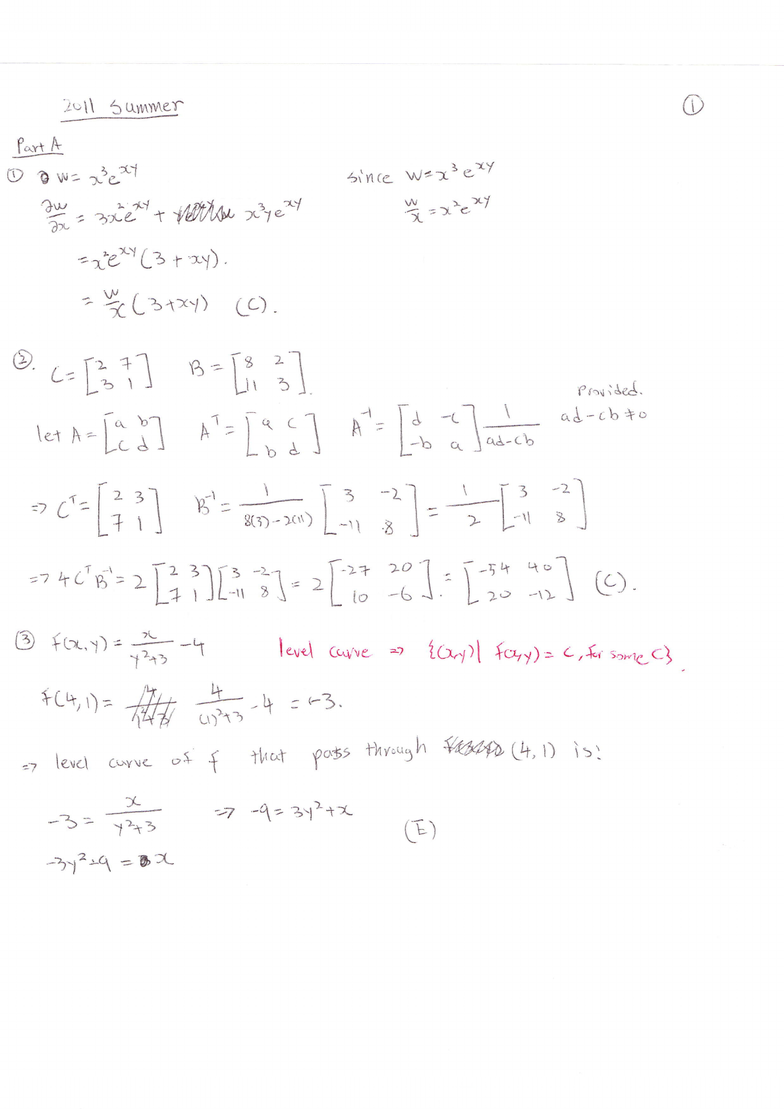 2011 Summer ①
Part A
① w = x³e^{xy} since w = x³e^{xy}
∂w/∂x = 3x²e^{xy} + x³ye^{xy} w/x = x²e^{xy}
= x²e^{xy}(3 + xy).
= w/x (3 + xy) (C).
②. C = [2 7; 3 1] B = [8 2; 11 3].
let A = [a b; c d] A^T = [a c; b d] A^{-1} = [d -c; -b a] 1/(ad-cb) Provided. ad-cb ≠ 0
=> C^T = [2 3; 7 1] B^{-1} = 1/(8(3)-2(11)) [3 -2; -11 8] = 1/2 [3 -2; -11 8]
=> 4C^T B^{-1} = 2 [2 3; 7 1][3 -2; -11 8] = 2 [-27 20; 10 -6] = [-54 40; 20 -12] (C).
③ f(x,y) = x/(y²+3) - 4 level curve => {(x,y)| f(x,y) = C, for some C}.
f(4,1) = 4/((1)²+3) - 4 = -3.
=> level curve of f that pass through (4,1) is:
-3 = x/(y²+3) => -9 = 3y²+x
-3y²-9 = x (E)